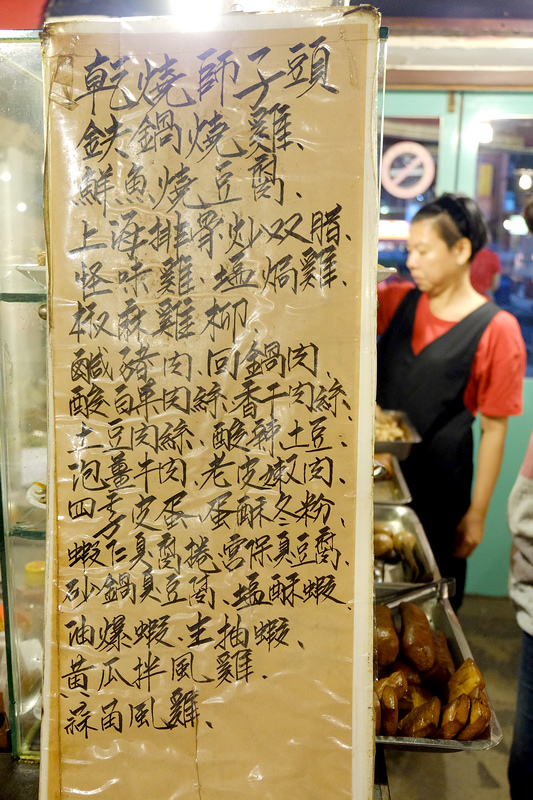 乾燒師子頭
鉄鍋燒雞、
鮮魚燒豆腐、
上海排骨炒双腊、
怪味雞、塩焗雞、
椒麻雞柳、
鹹豬肉、回鍋肉、
酸白菜肉絲、香干肉絲、
土豆肉絲、酸辣土豆、
泡薑牛肉、老皮嫩肉、
四季皮蛋、蛋酥冬粉、
蝦仁臭腐捲、宮保臭豆腐、
砂鍋臭豆腐、塩酥蝦、
油爆蝦、生抽蝦、
黃瓜拌風雞、
蒜苗風雞、